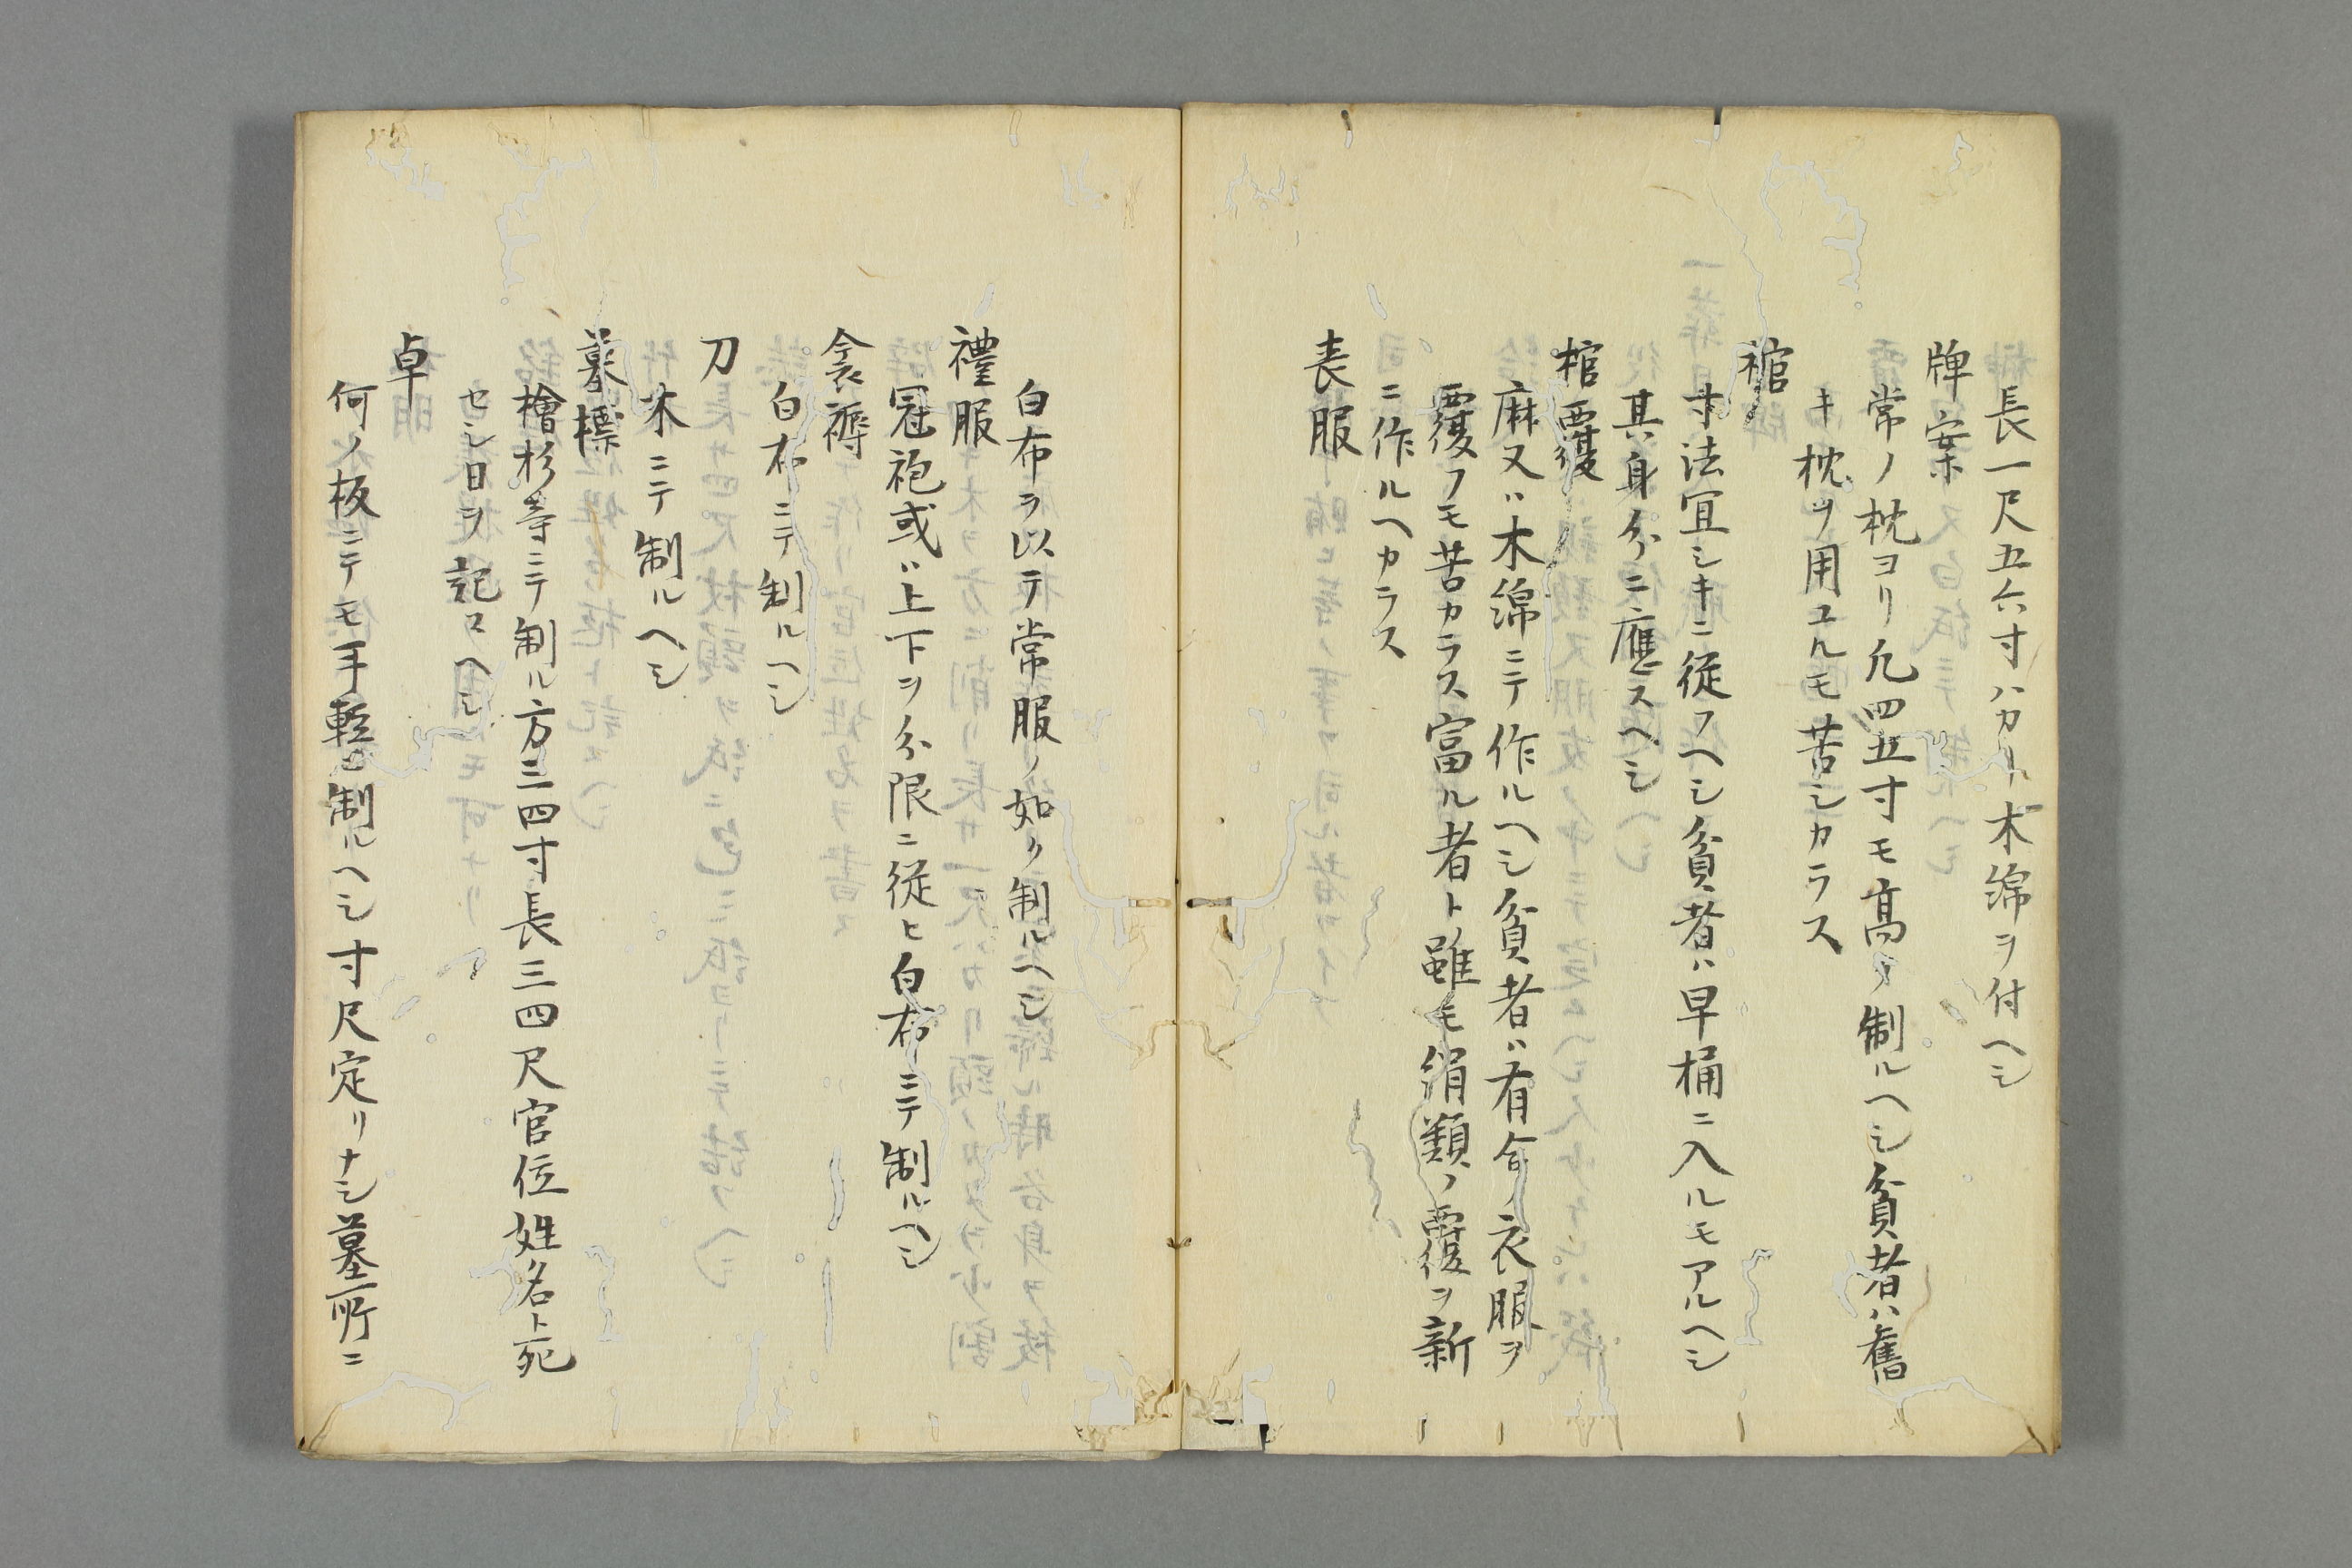 長一尺五六寸ハカリ木綿ヲ付ヘシ
牌案
常ノ枕ヨリ凢四五寸モ髙ク制ルヘシ貧者ハ舊
キ枕ヲ用ユルモ苦シカラス
棺
寸法冝シキニ従フヘシ貧者ハ早桶ニ入ルモアルヘシ
其身分ニ應スヘシ
棺覆
麻又ハ木綿ニテ作ルヘシ貧者ハ有合ノ衣服ヲ
覆フモ苦カラス富ル者ト雖モ絹類ノ覆ヲ新
ニ作ルヘカラス
表服
白布ヲ以テ常服ノ如ク制ルヘシ
禮服
冠袍或ハ上下ヲ分限ニ従ヒ白布ニテ制ルヘシ
衾褥
白布ニテ制ルヘシ
刀
木ニテ制ルヘシ
墓標
檜杉等ニテ制ル方三四寸長三四尺官位姓名ト死
セシ日ヲ記スヘシ
卓
何ノ板ニテモ手軽ク制ルヘシ寸尺定リナシ墓所ニ